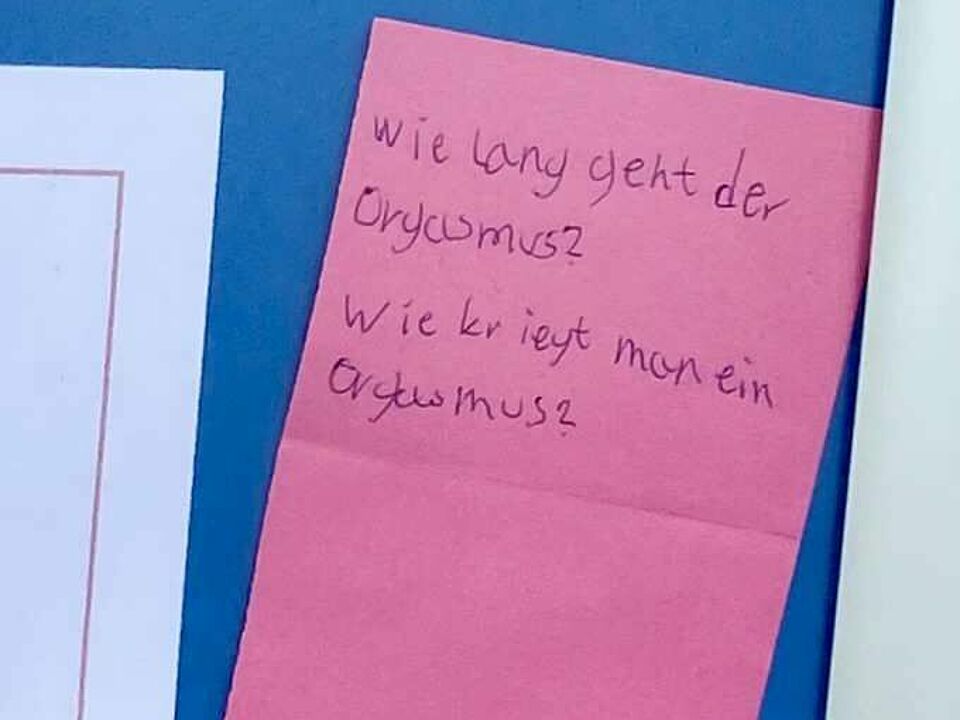 Wie lang geht der
Orgasmus?
Wie kriegt man ein
Orgasmus?